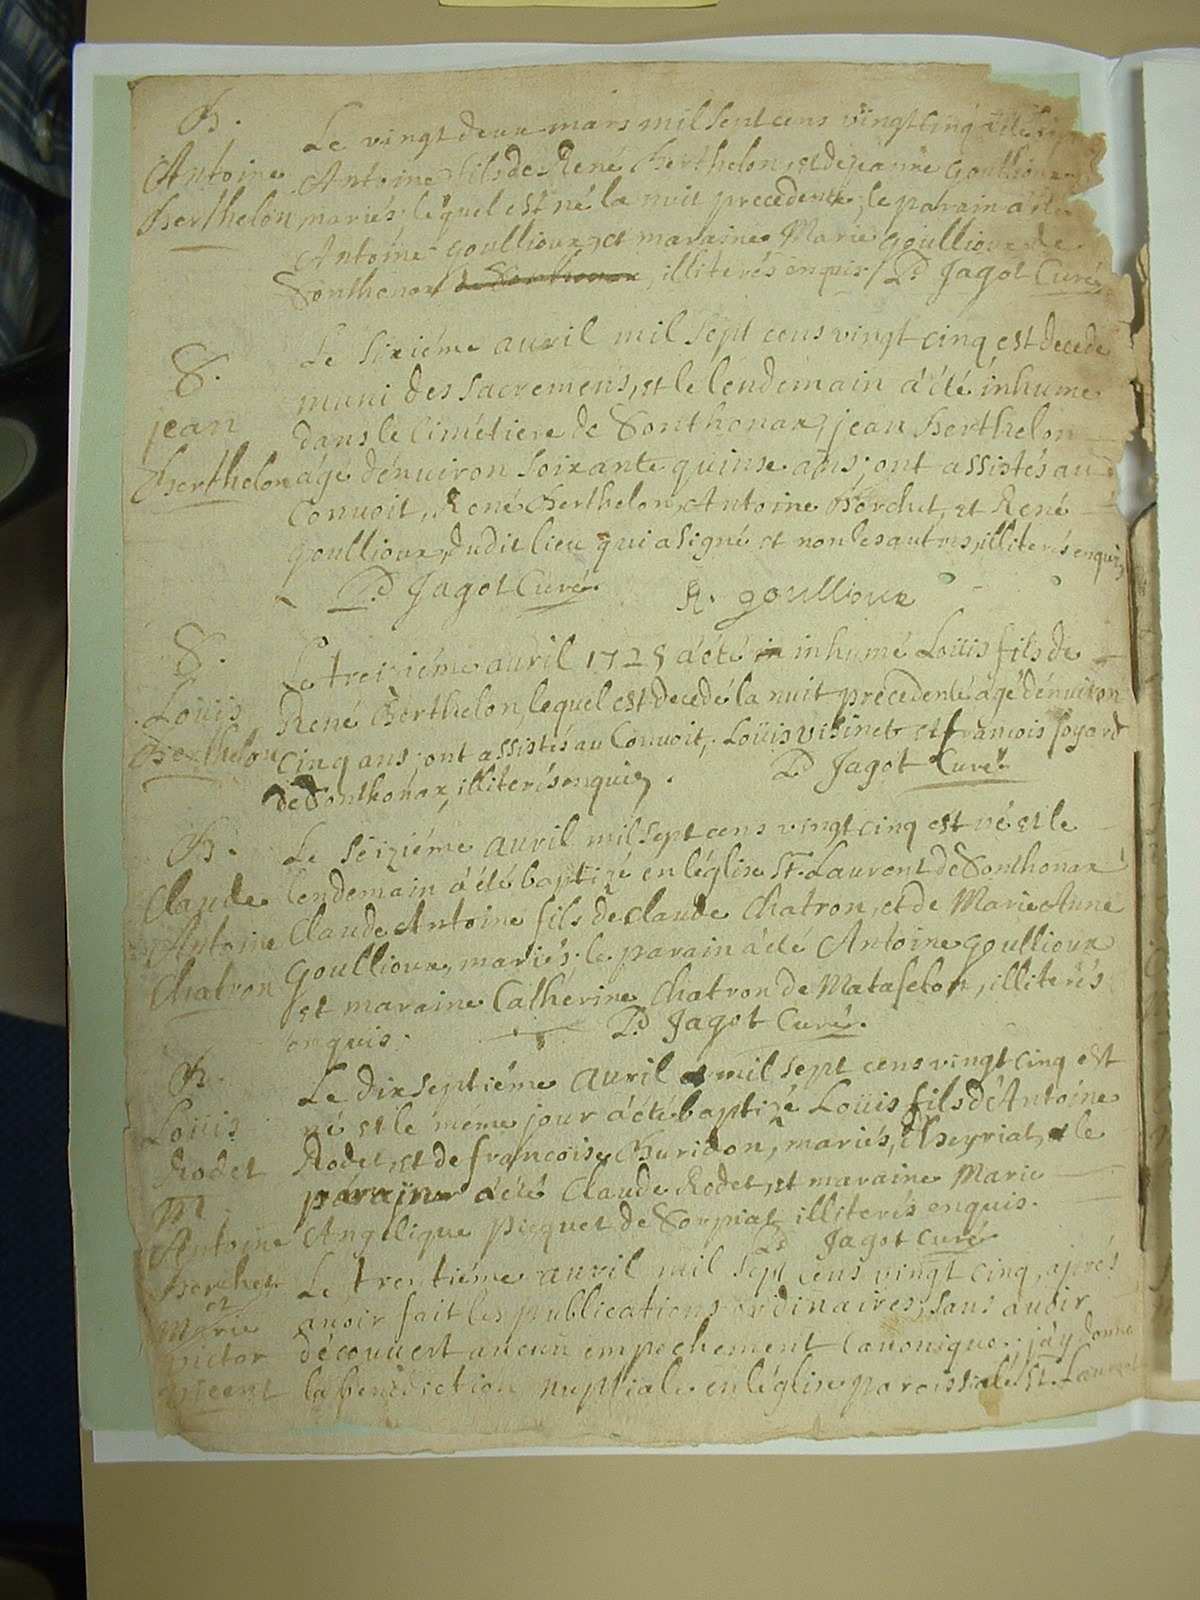 B.
Antoine
Berthelon
Le vingt deux mars mil sept cens vingt cinq a été
Antoine fils de Rene Berthelon, et de jeanne Goullioux
mariés; lequel est né la nuit precedente; le parain a été
Antoine goullioux, et maraine Marie goullioux de
Sonthonax, illiterés enquis / Jagot Curé
S.
jean
Berthelon
Le sixiéme auril mil sept cens vingt cinq est decede
muni des sacremens, et le lendemain a été inhume
dans le Cimétiere de Sonthonax, jean Berthelon
age dénuiron soixante quinse ans; ont assistés au
Conuoit, René Berthelon, Antoine Borchet, et René
goullioux, dudit lieu qui a signé et non les autres, illiterés enquis
Jagot Curé R. goullioux
S.
Loüis
Berthelon
Le treiziéme auril 1725 a été inhumé Loüis fils de
René Berthelon, lequel est decedé la nuit precedente agé dénuiron
cinq ans; ont assistés au Conuoit, Loüis visinet et francois Joyard
de Sonthonax, illiterés enquis. Jagot Curé
B.
Claude
Antoine
Chatron
Le seiziéme auril mil sept cens vingt cinq est né et le
lendemain a été baptizé en léglise St. Laurent de Sonthonax
Claude Antoine fils de Claude Chatron, et de Marie Anne
Goullioux, mariés; le parain a été Antoine goullioux
et maraine Catherine Chatron de Matafelon, illiterés
enquis. Jagot Curé.
B.
Loüis
Rodet
Le dix septiéme auril mil sept cens vingt cinq est
né et le meme jour a été baptizé Loüis fils d'Antoine
Rodet, et de francoise Buridon, mariés, d'heyriat, le
parain a été Claude Rodet, et maraine Marie
Angelique Picquet de Sorpiat illiterés enquis.
Jagot curé
M.
Antoine
Borchet
et
Marie
Victor
Vicent
Le trentiéme auril mil sept cens vingt cinq, aprés
auoir fait les publications ordinaires, sans auoir
découuert aucun empechement Canonique; j'ay donne
la bénédiction nuptiale en léglise paroissiale St. Laurent